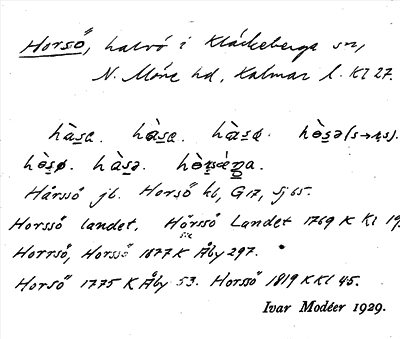 Horsö, halvö i Kläckeberga sn,
N. Möre hd, Kalmar l. Kl 27.
hàs̱a. hàs̱a. hàs̱ø. hòs̱ə (s→rs).
hòs̱ø. hàs̱ə.
Hårssö jb. Horsö kb, G17, Sj 65.
Horssö landet. Hörssö Landet 1769 K Kl 19
sic
Horrsö, Horsö 1877 K Åby 297.
Horsö 1775 K Åby 53. Horssö 1819 K Kl 45.
Ivar Modéer 1929.